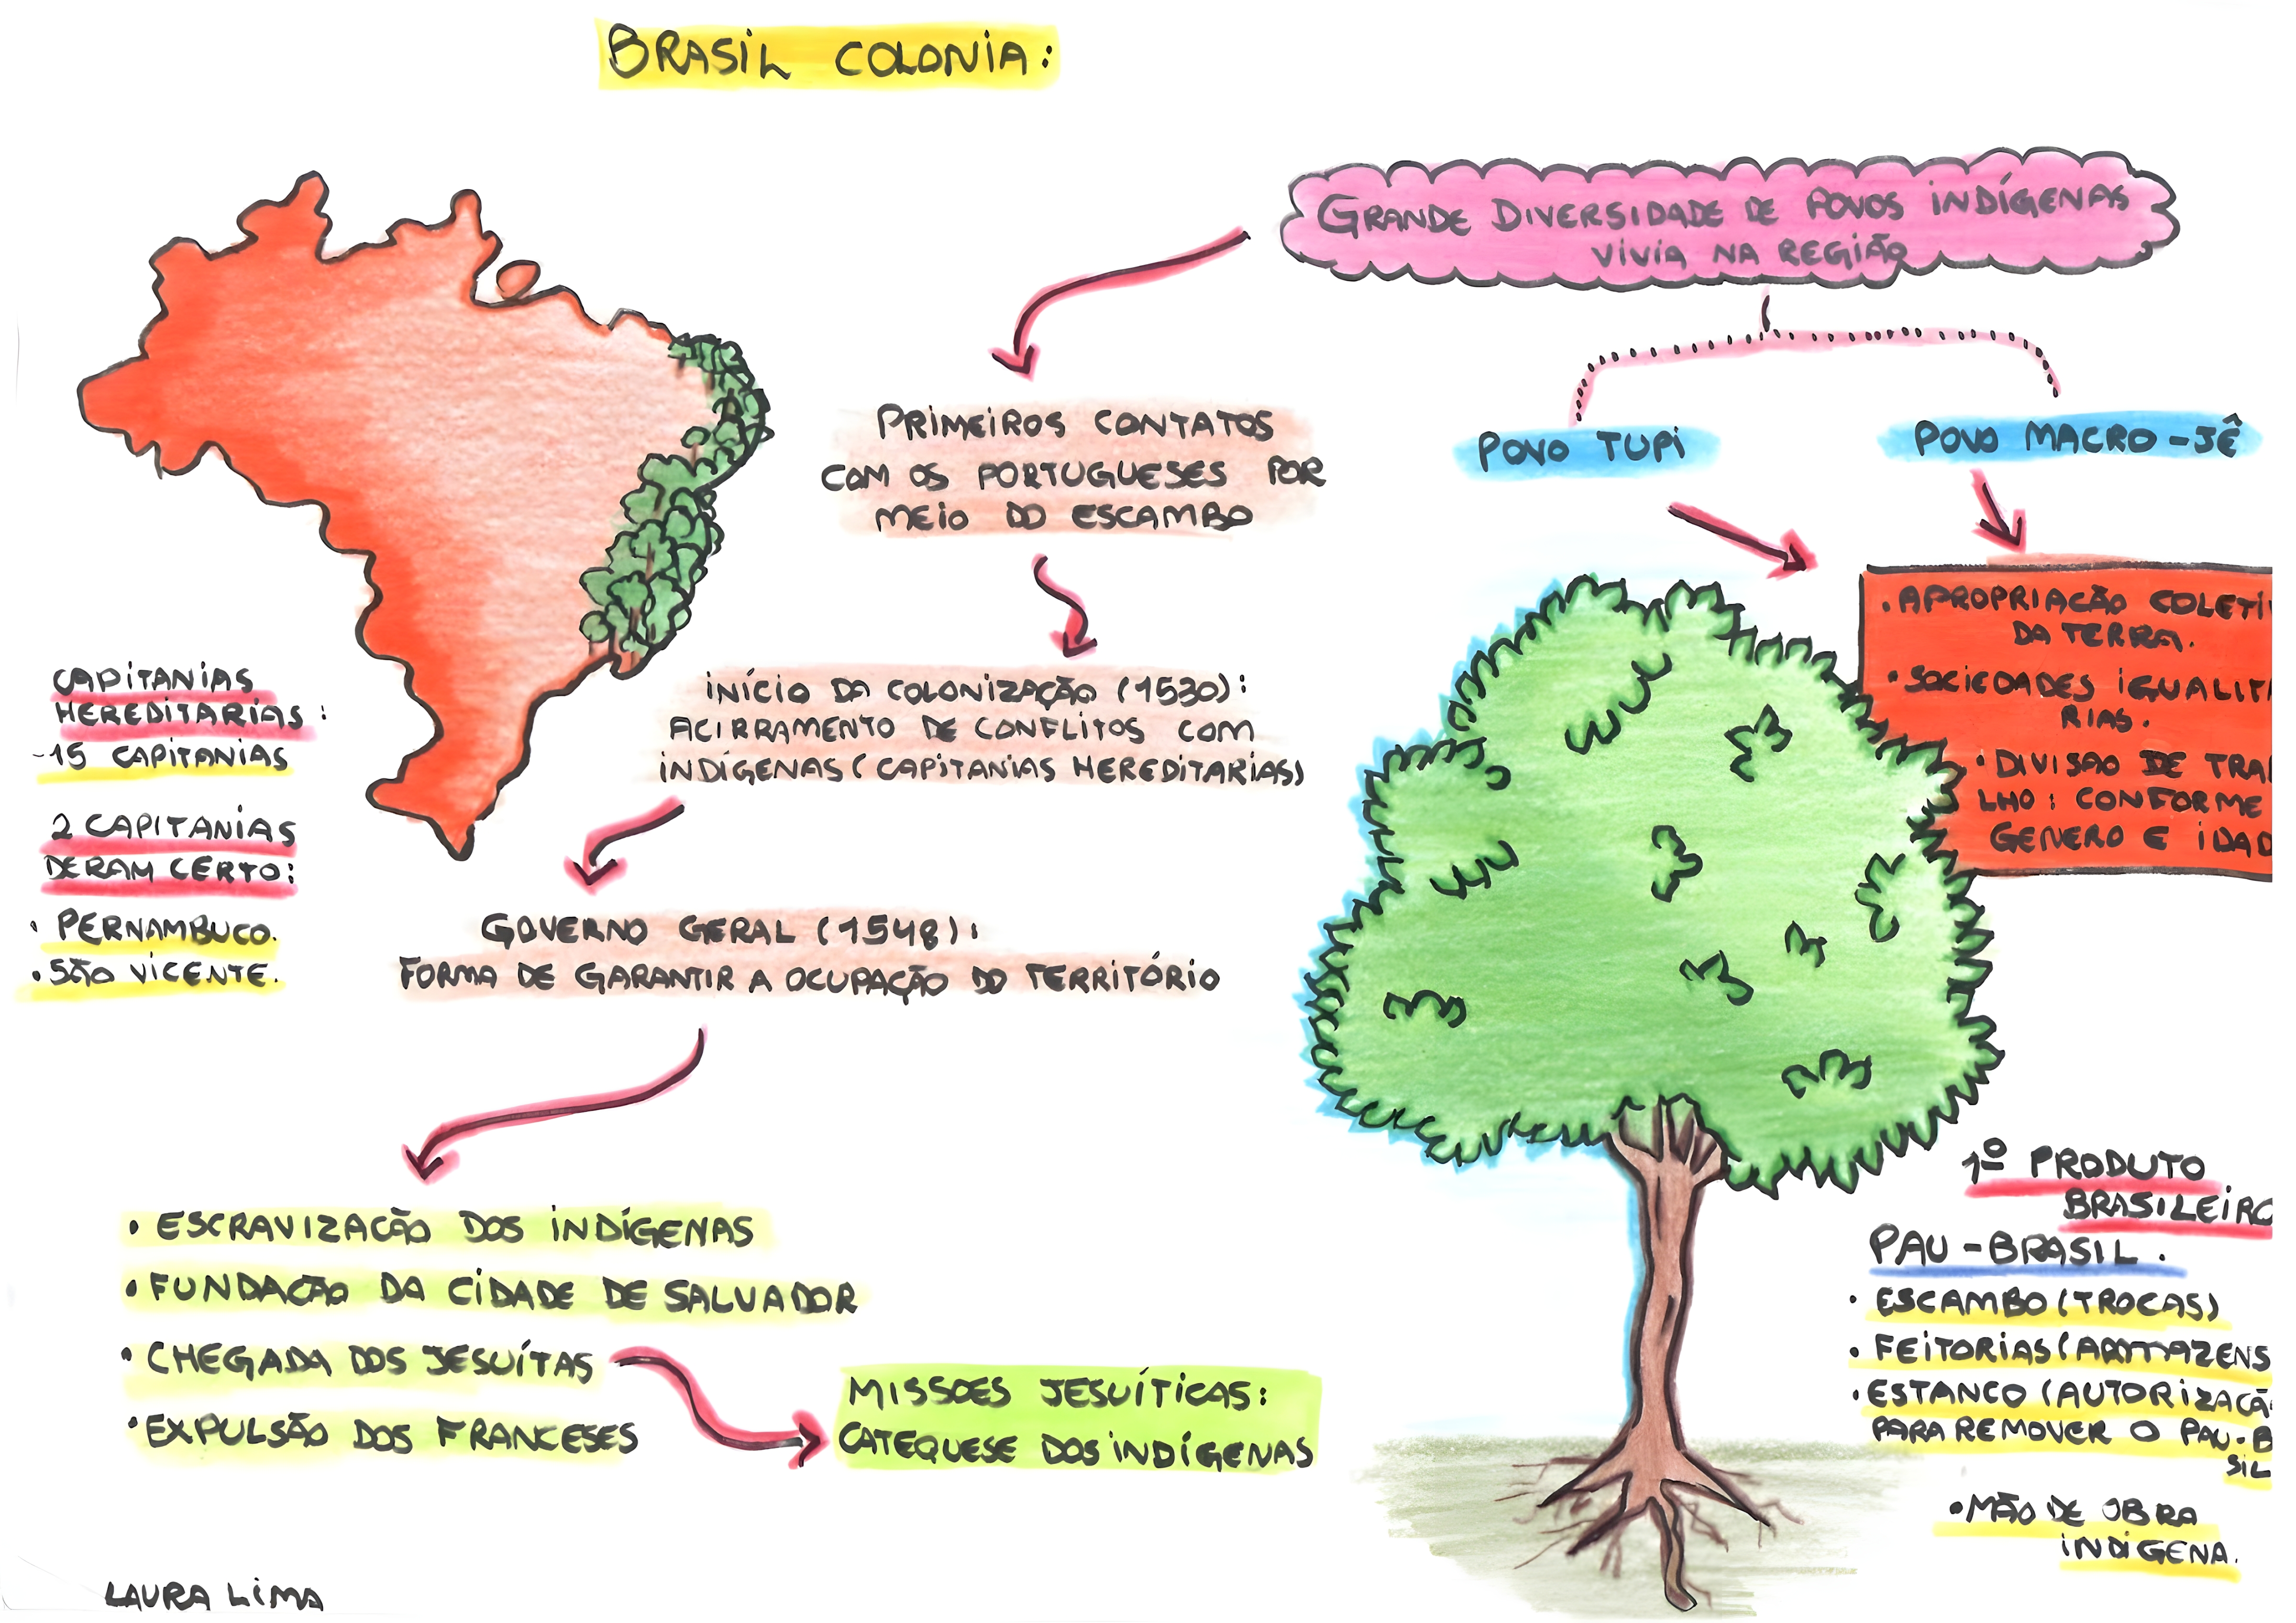 BRASIL COLONIA:
GRANDE DIVERSIDADE DE POVOS INDÍGENAS
VIVIA NA REGIÃO
PRIMEIROS CONTATOS
COM OS PORTUGUESES POR
MEIO DO ESCAMBO
POVO TUPI
POVO MACRO-JÊ
• APROPRIAÇÃO COLETI
DA TERRA.
• SOCIEDADES IGUALIT
RIAS.
• DIVISÃO DE TRA
LHO: CONFORME
GENERO E IDAD
INÍCIO DA COLONIZAÇÃO (1530):
ACIRRAMENTO DE CONFLITOS COM
INDÍGENAS (CAPITANIAS HEREDITARIAS)
CAPITANIAS
HEREDITARIAS:
-15 CAPITANIAS
2 CAPITANIAS
DERAM CERTO:
• PERNAMBUCO.
• SÃO VICENTE.
GOVERNO GERAL (1548):
FORMA DE GARANTIR A OCUPAÇÃO DO TERRITÓRIO
• ESCRAVIZAÇÃO DOS INDÍGENAS
• FUNDAÇÃO DA CIDADE DE SALVADOR
• CHEGADA DOS JESUÍTAS
• EXPULSÃO DOS FRANCESES
MISSOES JESUÍTICAS:
CATEQUESE DOS INDÍGENAS
1º PRODUTO
BRASILEIRO
PAU-BRASIL.
• ESCAMBO (TROCAS)
• FEITORIAS (ARMAZENS
• ESTANCO (AUTORIZAÇÃ
PARA REMOVER O PAU-B
SIL
• MÃO DE OBRA
INDIGENA.
LAURA LIMA